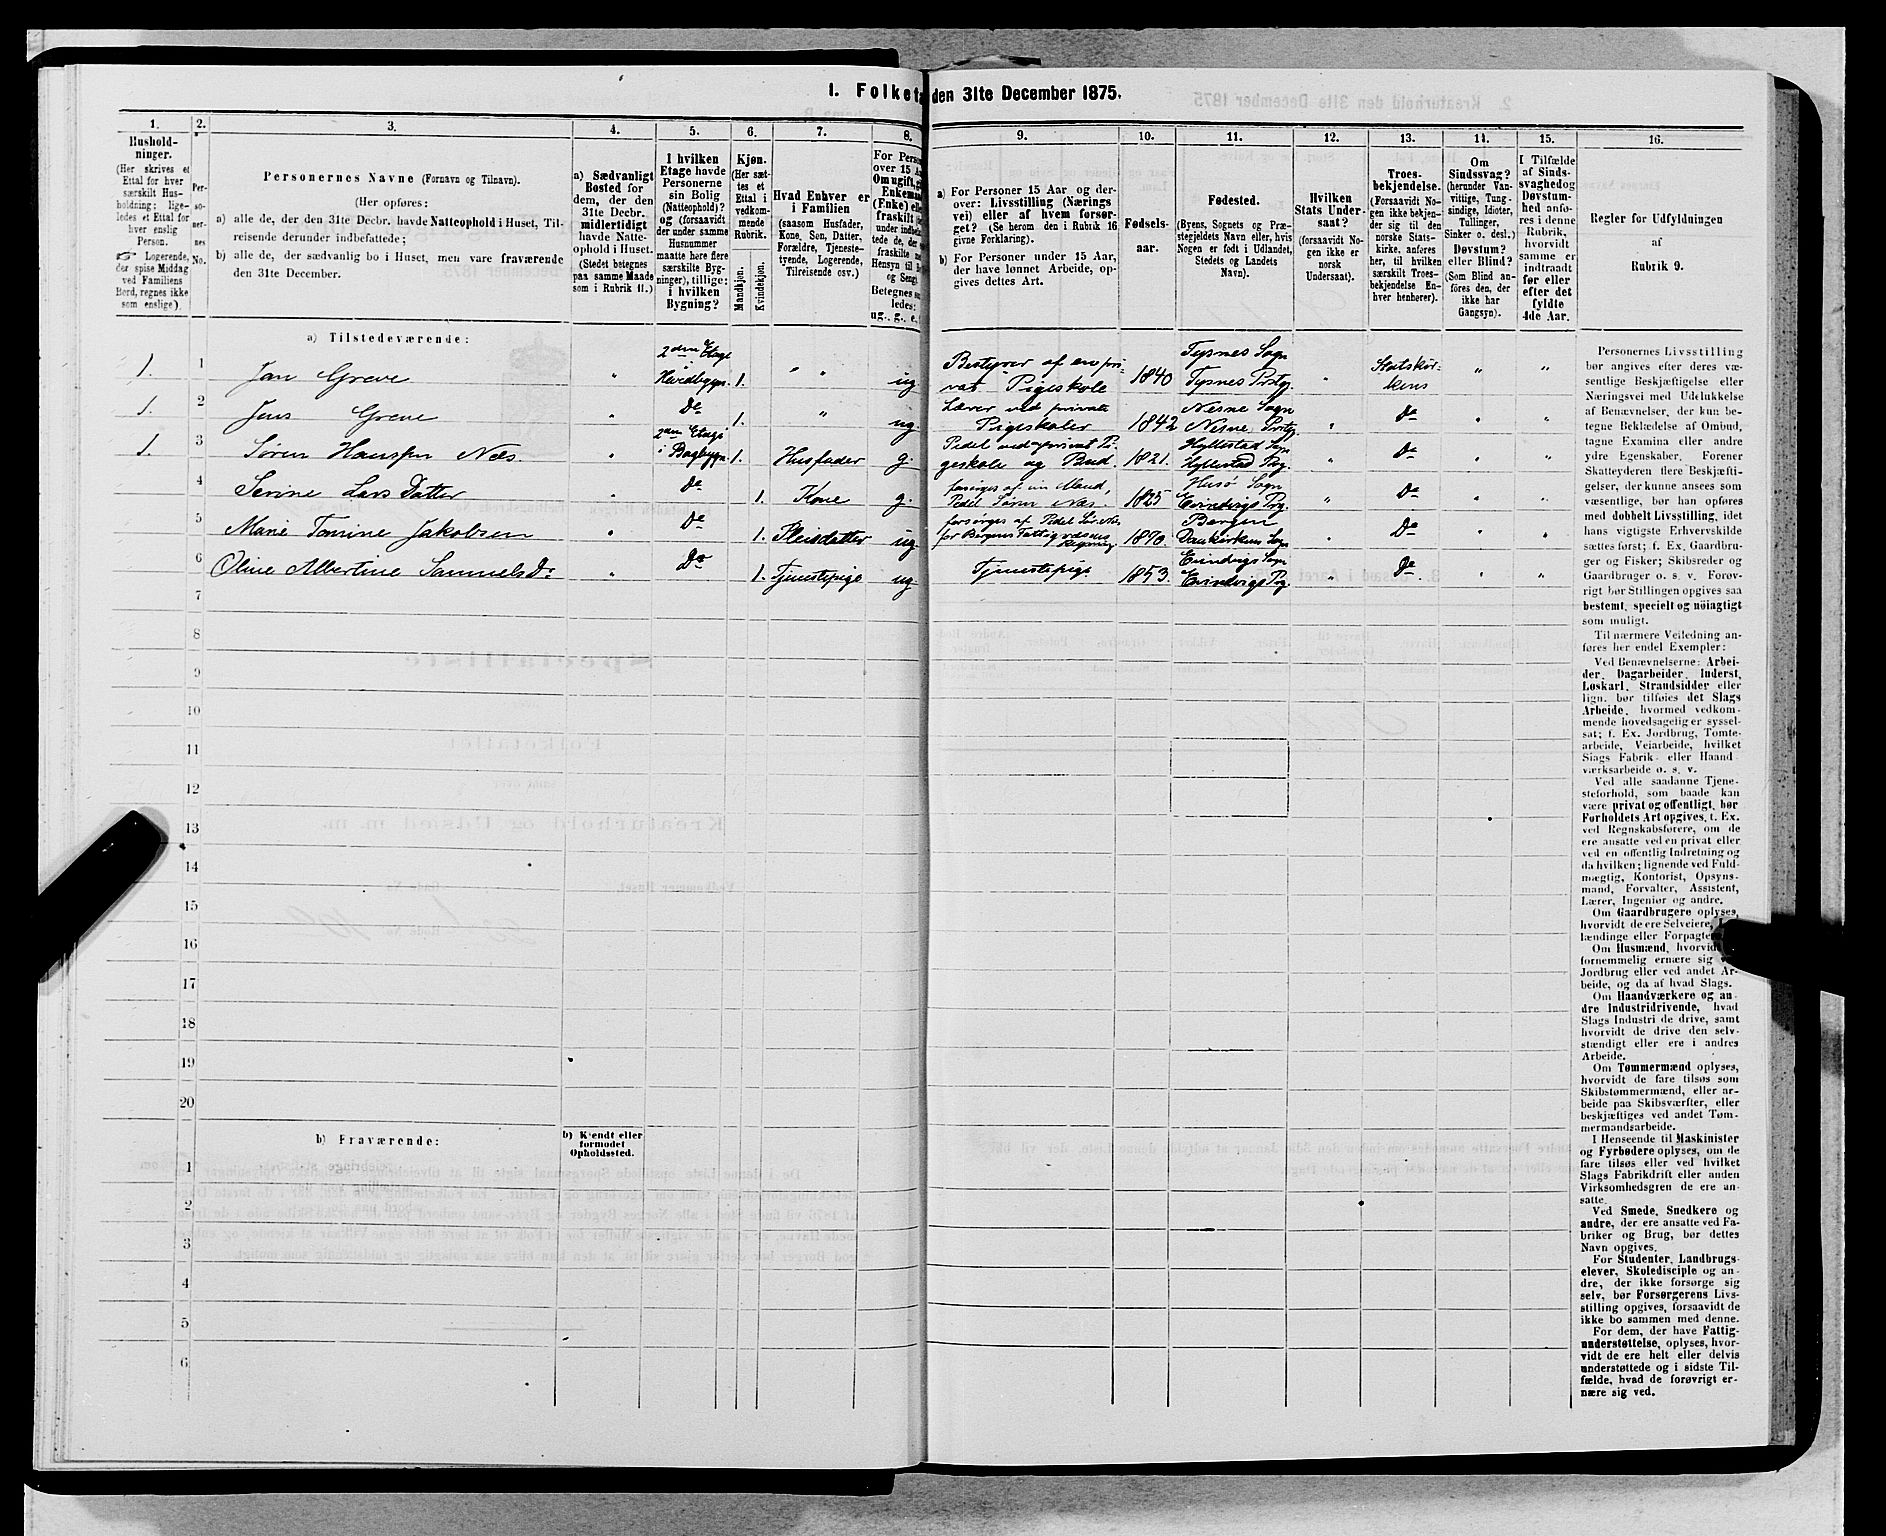 1. Folketæ den 31te December 1875.
1. 2. 3. 4. 5. 6. 7. 8. 9. 10. 11. 12. 13. 14. 15. 16.
Hushold-
ninger.
(Her skrives et
Ettal for hver
særskilt Hus-
holdning; lige-
ledes et Ettal for
hver enslig
Person.
Logerende,
der spise Middag
ved Familiens
Bord, regnes ikke
som enslige).
Per-
so-
ner-
nes
No.
Personernes Navne (Fornavn og Tilnavn).
(Her opføres:
a) alle de, der den 31te Decbr. havde Natteophold i Huset, Til-
reisende derunder indbefattede;
b) alle de, der sædvanlig bo i Huset, men vare fraværende
den 31te December.
a) Sædvanligt
Bosted for
dem, der den
31te Decbr.
midlertidigt
havde Natte-
ophold i Huset.
(Stedet betegnes
paa samme Maade
som i Rubrik 11.)
I hvilken
Etage havde
Personerne
sin Bolig
(Natteophold)?
og (forsaavidt
der under samme
Husnummer
maatte høre flere
særskilte Byg-
ninger), tillige:
i hvilken
Bygning?
Kjøn.
(Her sæt-
tes et
Ettal i
vedkom-
mende
Rubrik.
Mandkjøn.
Kvindekjøn.
Hvad Enhver er
i Familien
(saasom Husfader,
Kone, Son, Datter,
Forældre, Tjeneste-
tyende, Logerende,
Tilreisende osv.)
For Perso
over 15 A
Om ugift, g
Enkeman
(Enke) elle
fraskilt
under indbe
tede de, der
fraskilte
Hensyn til B
og Seng).
Betegnes sa
ledes:
ug., g., e.,
a) For Personer 15 Aar og der-
over: Livsstilling (Nærings
vei) eller af hvem forsør-
get? (Se herom den i Rubrik 16
givne Forklaring).
b) For Personer under 15 Aar,
der have lønnet Arbeide, op-
gives dettes Art.
Fødsels-
aar.
Fødested.
(Byens, Sognets og Præ-
stegjeldets Navn eller, hvis
Nogen er født i Udlandet,
Stedets og Landets
Navn).
Hvilken
Stats Under-
saat?
(forsaavidt No-
gen ikke er
norsk
Undersaat).
Troes-
bekjendelse.
(Forsaavidt No-
gen ikke bekjen-
der sig til den
norske Stats-
kirke, anføres
her, til hvilken
særskilt Troes-
bekjendelse En-
hver henhører).
Om
Sindssvag?
(herunder Van-
vittige, Tung-
sindige, Idioter,
Tullinger,
Sinker o. desl.)
Døvstum?
eller Blind?
(Som Blind an-
føres den, der
ikke har
Gangsyn).
I Tilfælde
af Sinds-
svaghed og
Døvstum-
hed anfø-
res i denne
Rubrik,
hvorvidt
samme er
indtraadt
før eller
efter det
fyldte
4de Aar.
Regler for Udfyldningen
af
Rubrik 9.
a) Tilstedeværende:
1. 1 Jan Greve " 2den Etage i Hovedbygn. 1. " " ug Bestyrer af en pri-vat Pigeskole 1840 Tysnes Sogn Tysnes Prstgj. " Statskir-kens " "
1. 2 Jens Greve " Do 1. " ug. Lærer ved private Pigeskoler 1842 Nesne Sogn Nesne Prstgj. " Do " "
1. 3 Søren Hansen Næs. " 2den Etage i Bagbygn. 1. Husfader g. Pedel ved privat Pi-geskole og Bud. 1821. Hyllestad Sogn Hyllestad Prg. " Do " "
4 Serine Lars Datter " Do 1. Kone g. forsørges af sin Mand, Pedel Søren Næs. 1825 Husø Sogn Evindvigs Prg. " Do " "
5 Marie Tomine Jakobsen " Do 1. Pleiedatter ug forsørges af Pedel for Bergens Fattigvæsens Regning 1870. Bergen Domkirkens Sogn " Do " "
6 Oline Albertine Samuels D. " Do 1. Tjenestepige ug Tjenestepige 1853. Evindvigs Sogn Evindvigs Prg. " Do " "
7
8
9
10
11
12
13
14
15
16
17
18
19
20
b) Fraværende:
b) Kjendt eller
formodet
Opholdssted.
1
2
3
4
5
6
Personernes Livsstilling
bør angives efter deres væ-
sentlige Beskjæftigelse eller
Næringsvei med Udelukkelse
af Benævnelser, der kun be-
tegne Beklædelse af Ombud,
tagne Examina eller andre
ydre Egenskaber. Forener
Skatteyderen flere Beskjæfti-
gelser, der kunne ansees som
væsentlige, bør han opføres
med dobbelt Livsstilling, idet
hans vigtigste Erhvervskilde
sættes først; f. Ex. Gaardbru-
ger og Fisker; Skibsreder og
Gaardbruger o. s. v. Forøv-
rigt bør Stillingen opgives saa
bestemt, specielt og nøiagtigt
som muligt.
Til nærmere Veiledning an-
føres her endel Exempler:
Ved Benævnelserne: Arbei-
der, Dagarbeider, Inderst,
Løskarl, Strandsidder eller
lign. bør tilføies det Slags
Arbeide, hvormed vedkom-
mende hovedsagelig er syssel-
sat; f. Ex. Jordbrug, Tomte-
arbeide, Veiarbeide, hvilket
Slags Fabrik- eller Haand
værksarbeide o. s. v.
Ved alle saadanne Tjene-
steforhold, som baade kan
være privat og offentligt, bør
Forholdets Art opgives, t. Ex.
ved Regnskabsførere, om de
ere ansatte ved en privat eller
ved en offentlig Indretning og
da hvilken; lignende ved Fuld-
mægtig, Kontorist, Opsyns-
mand, Forvalter, Assistent,
Lærer, Ingeniør og andre.
Om Gaardbrugere oplyses,
hvorvidt de ere Selveiere,
lændinge eller Forpagte
Om Husmænd, hvorvidt
fornemmelig ernære sig
Jordbrug eller ved andet Ar-
beide, og da af hvad Slags.
Om Haandværkere og an-
dre Industridrivende, hvad
Slags Industri de drive, samt
hvorvidt de drive den selv-
stændigt eller ere i andres
Arbeide.
Om Tømmermænd oplyses,
hvorvidt de fare tilsøs som
Skibstømmermænd, eller ar-
beide paa Skibsværfter, eller
beskjæftiges ved andet Tøm-
mermandsarbeide.
I Henseende til Maskinister
og Fyrbødere oplyses, om de
fare tilsøs eller ved hvilket
Slags Fabrikdrift eller anden
Virksomhedsgren de ere an-
satte.
Ved Smede, Snedkere og
andre, der ere ansatte ved Fa-
briker og Brug, bør dettes
Navn opgives.
For Studenter, Landbrugs-
elever, Skoledisciple og an-
dre, der ikke forsørge sig
selv, bør Forsørgerens Livs-
stilling opgives, forsaavidt de
ikke bo sammen med denne.
For dem, der have Fattig-
understøttelse, oplyses, hvor-
vidt de ere helt eller delvis
understøttede og i sidste Til-
fælde, hvad de forøvrigt er-
nære sig ved.